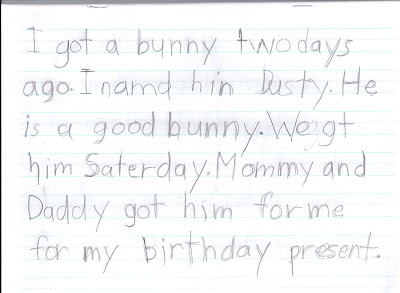 I got a bunny two days
ago. I namd hin Dusty. He
is a good bunny. We gt
him Saterday. Mommy and
Daddy got him for me
for my birthday present.